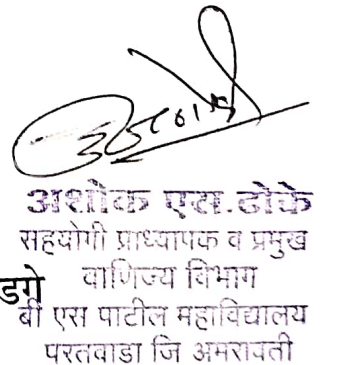 अशोक एस.ढोके
सहयोगी प्राध्यापक व प्रमुख
डगे वाणिज्य विभाग
बी एस पाटील महाविद्यालय
परतवाडा जि अमरावती